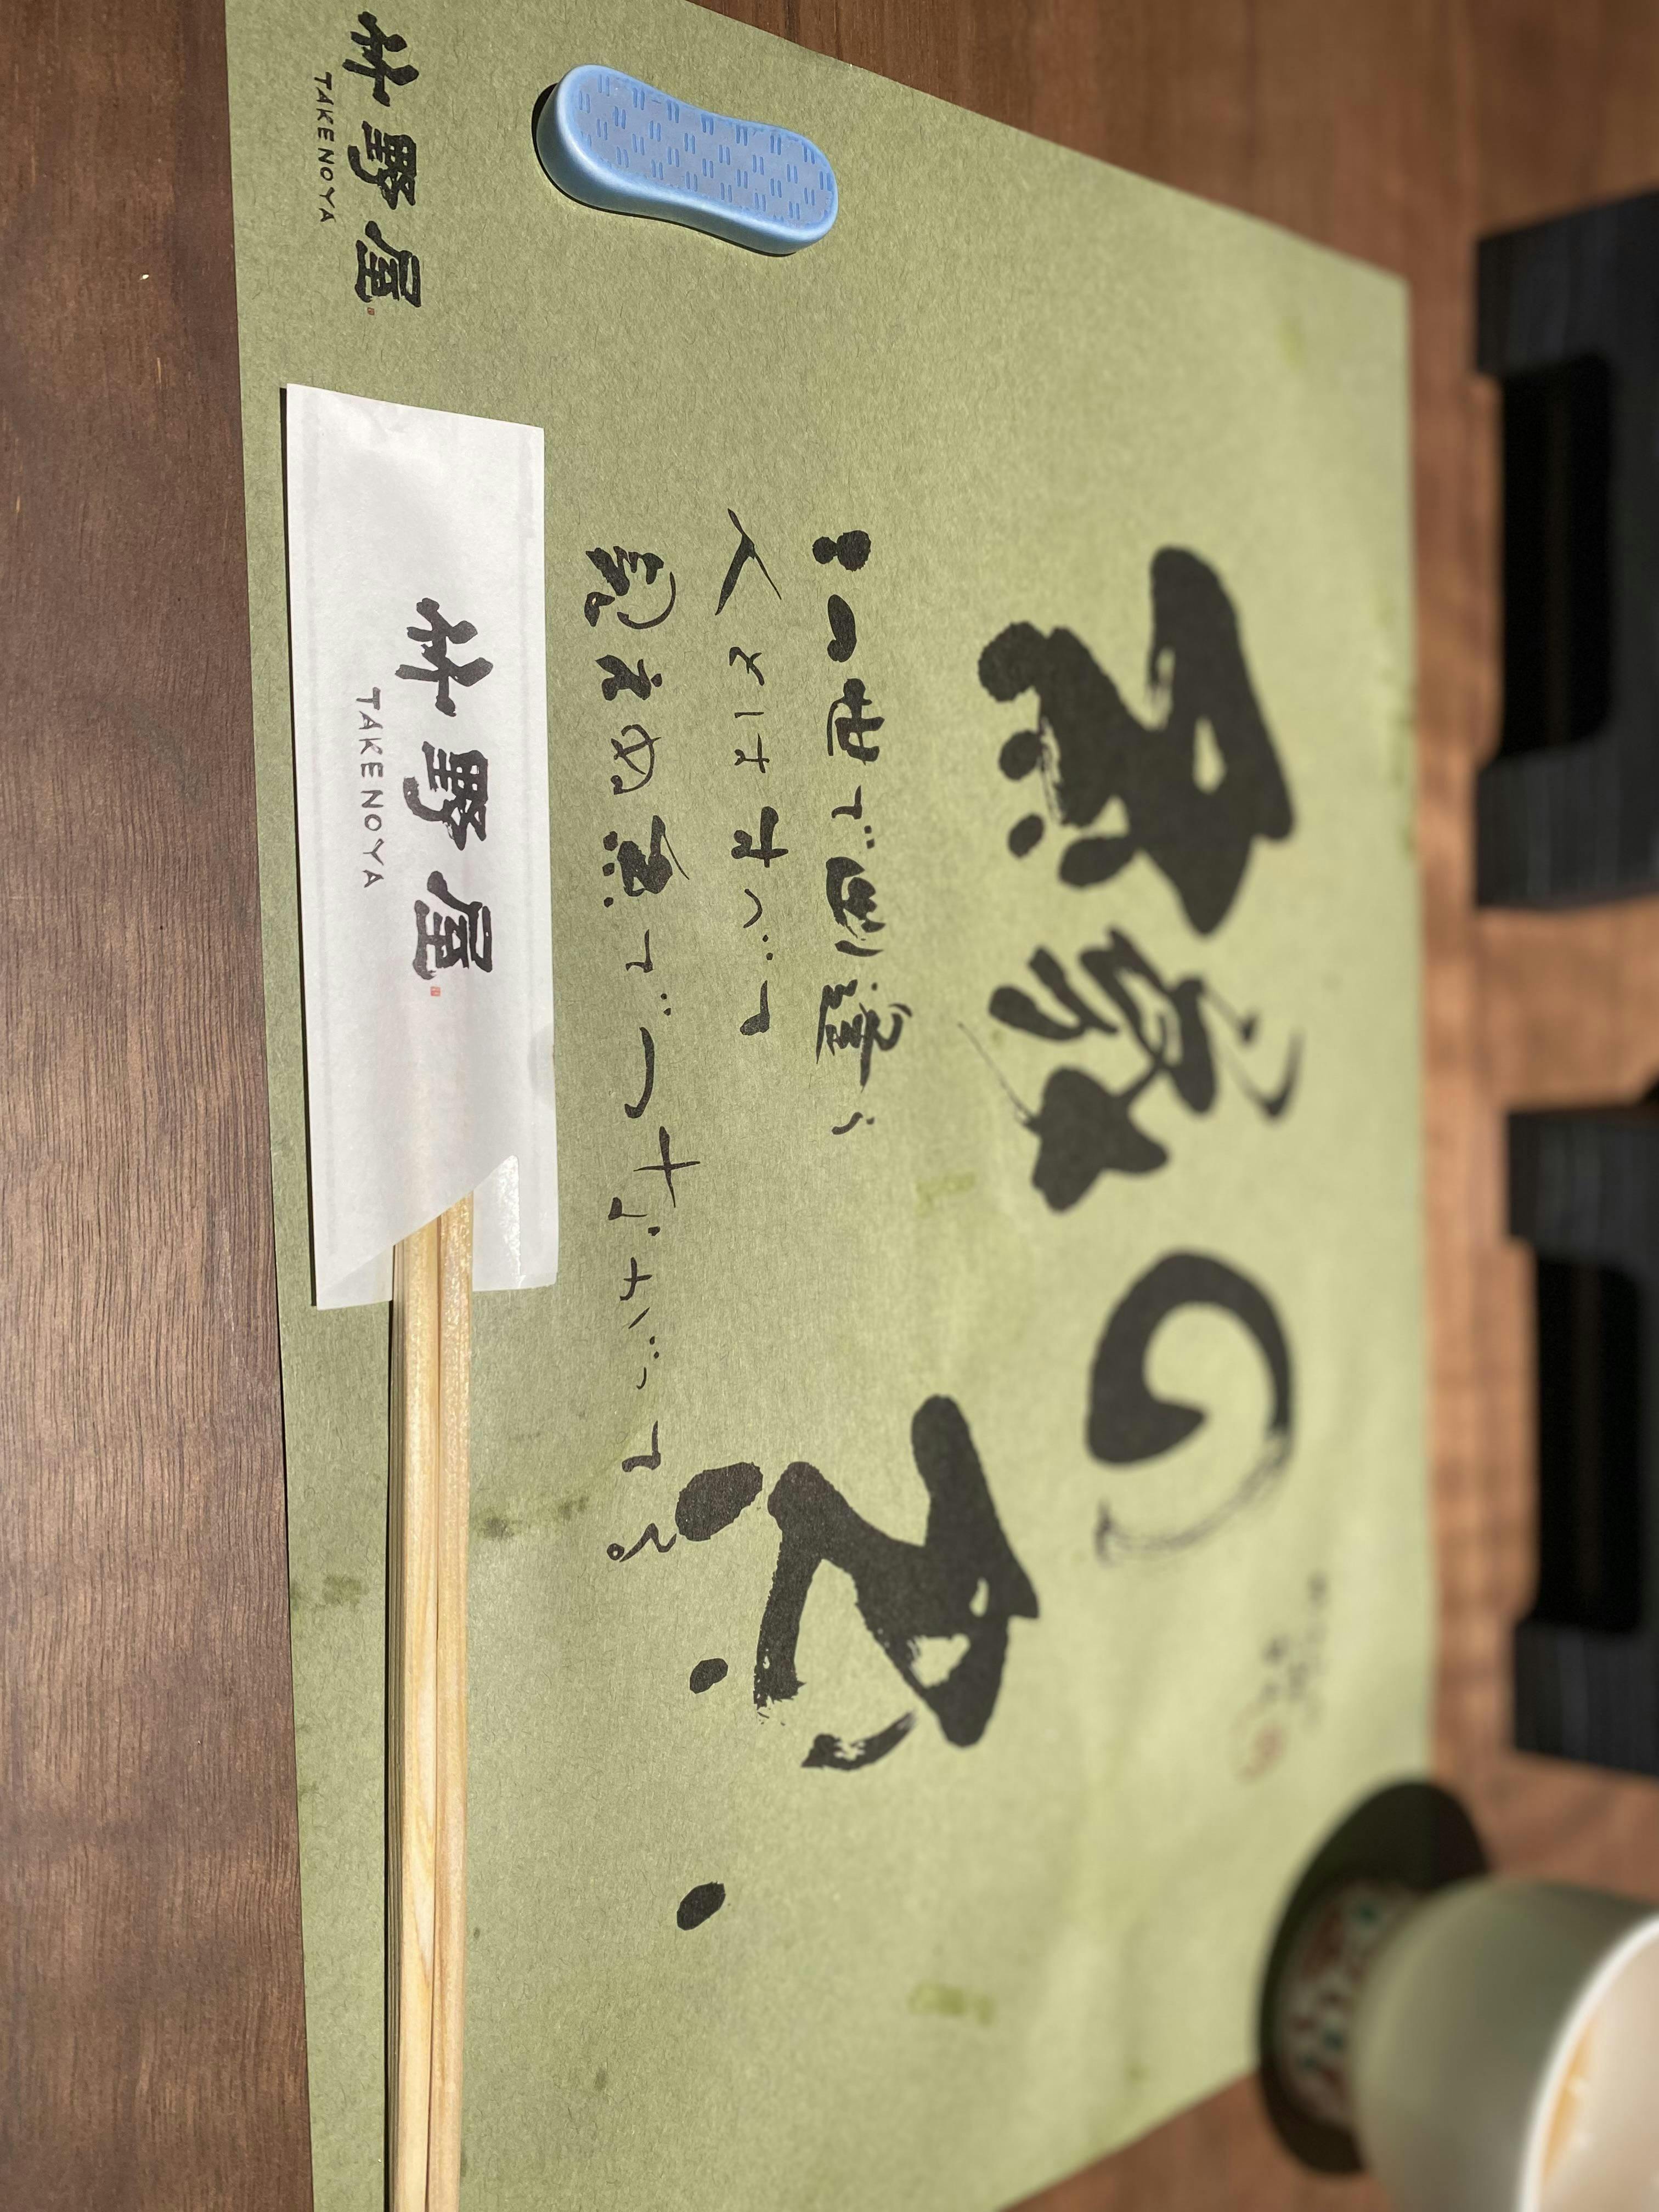 縁の糸
この世で出逢う
人とはすべて
見えぬ糸でつながってる
竹野屋
TAKENOYA
竹野屋
TAKENOYA